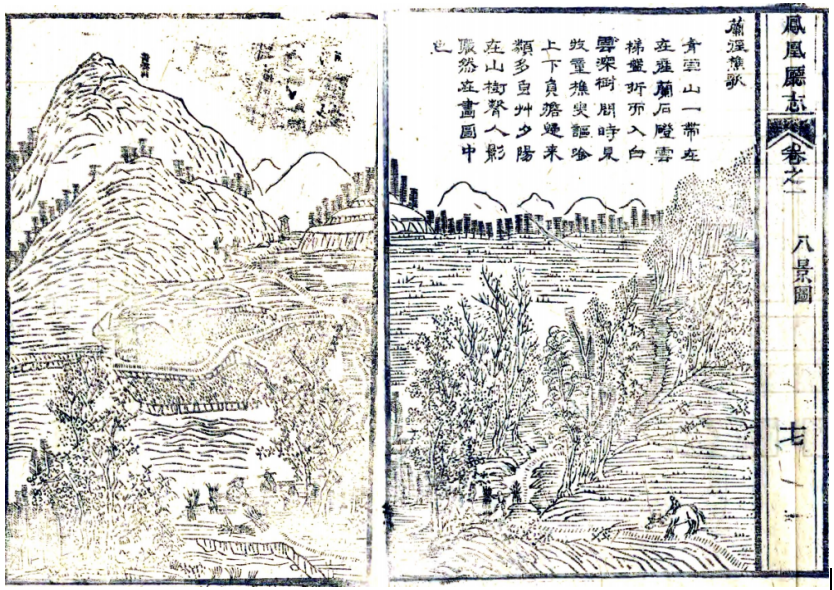 鳳凰廳志
卷之一
八景圖
七
蘭徑樵歌
青雲山一帶在
在產蘭石磴雲
梯盤折而入白
雲深樹間時見
牧童樵叟謳唫
上下負擔來
類多束艸夕陽
在山樹聲人影
然在畫圖中
也